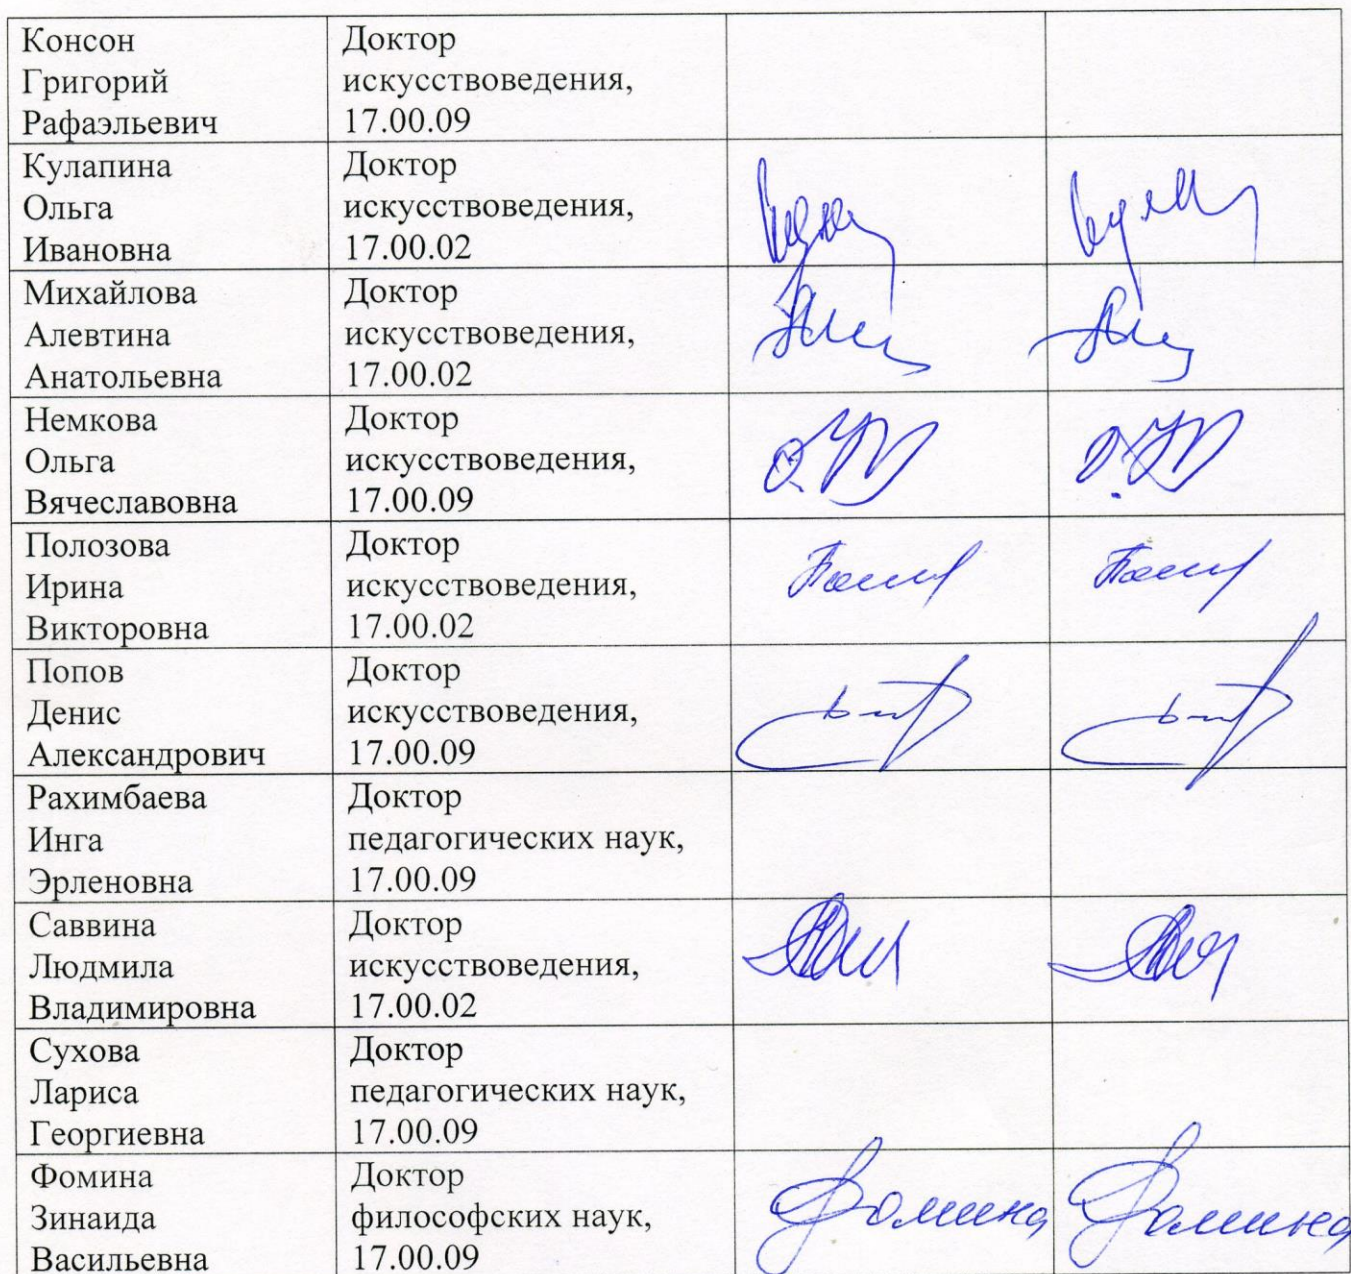 Консон
Григорий
Рафаэльевич
Доктор
искусствоведения,
17.00.09
Кулапина
Ольга
Ивановна
Доктор
искусствоведения,
17.00.02
Михайлова
Алевтина
Анатольевна
Доктор
искусствоведения,
17.00.02
Немкова
Ольга
Вячеславовна
Доктор
искусствоведения,
17.00.09
Полозова
Ирина
Викторовна
Доктор
искусствоведения,
17.00.02
Попов
Денис
Александрович
Доктор
искусствоведения,
17.00.09
Рахимбаева
Инга
Эрленовна
Доктор
педагогических наук,
17.00.09
Саввина
Людмила
Владимировна
Доктор
искусствоведения,
17.00.02
Сухова
Лариса
Георгиевна
Доктор
педагогических наук,
17.00.09
Фомина
Зинаида
Васильевна
Доктор
философских наук,
17.00.09
Фомина
Фомина